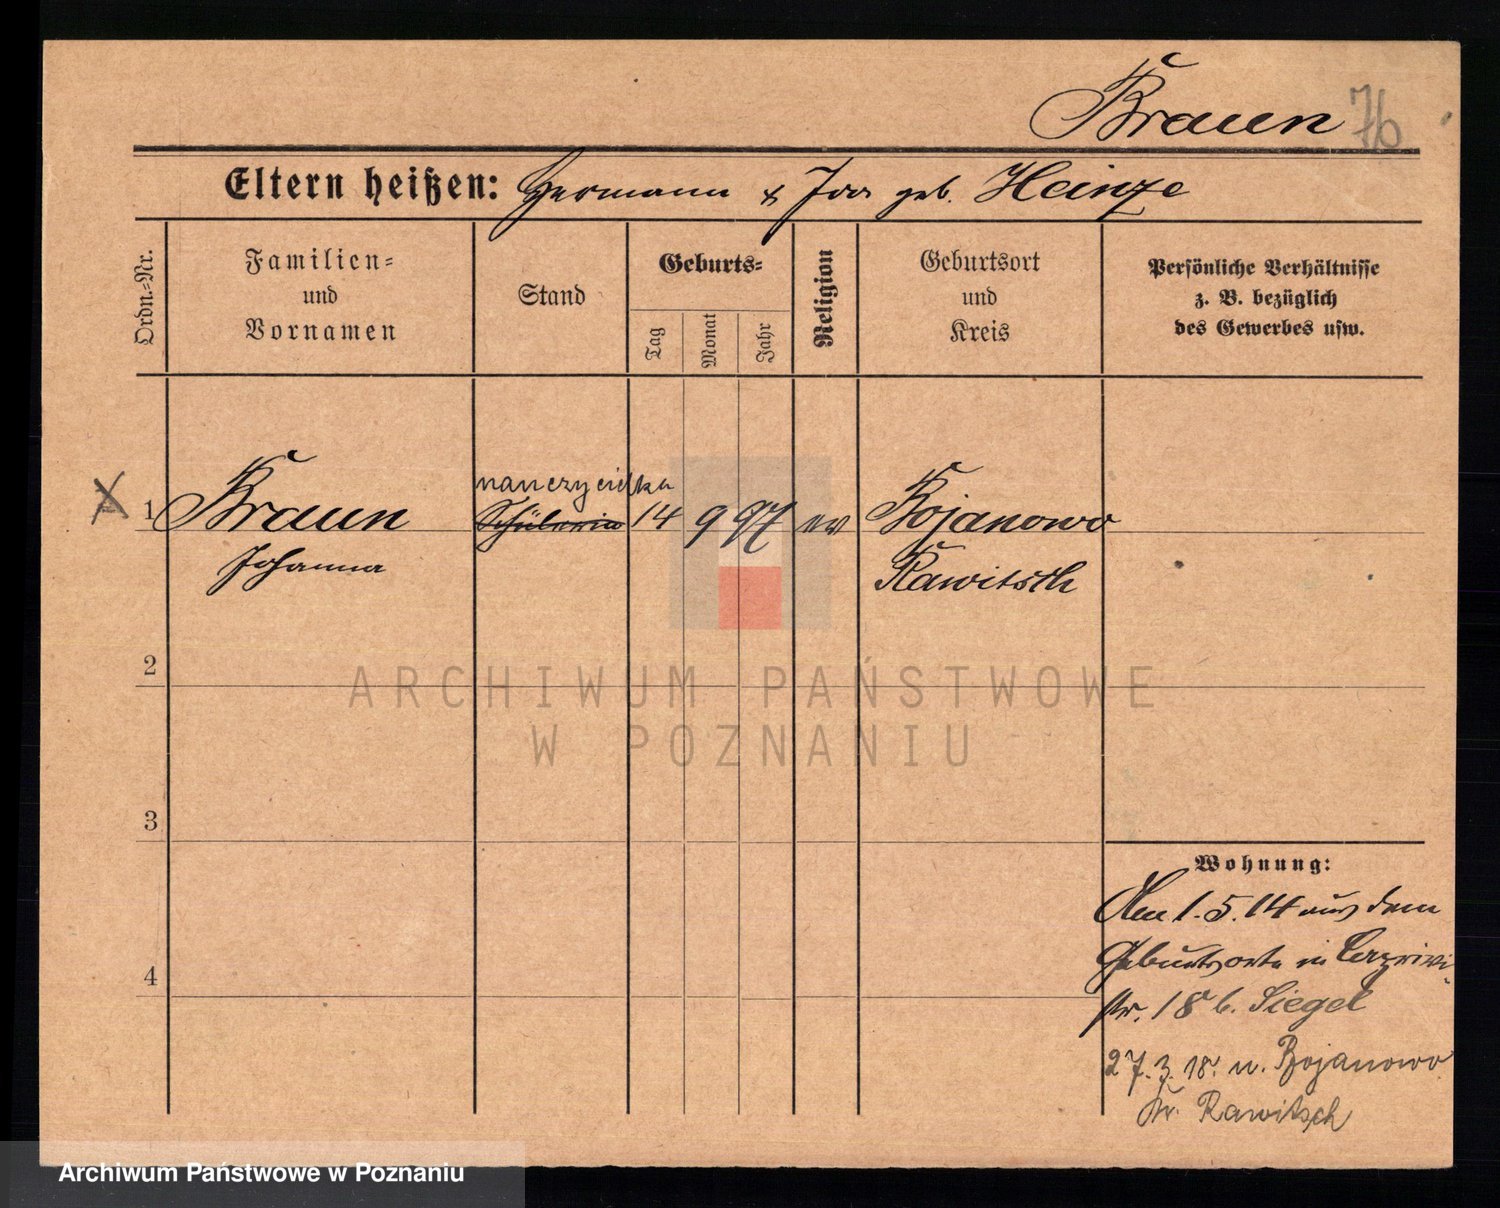 Braun 76
Eltern heißen: Hermann & Ida geb. Heinze
Ordn.-Nr.
Familien-
und
Vornamen
Stand
Geburts-
Tag
Monat
Jahr
Religion
Geburtsort
und
Kreis
Persönliche Verhältnisse
z. B. bezüglich
des Gewerbes usw.
nauczycielka
1 Braun Schülerin 14 9 97 ev Bojanowo
Johanna Rawitsch
2
ARCHIWUM PAŃSTWOWE
W POZNANIU
3
Wohnung:
Am 1.5.14 aus dem
4 Geburtsorte in Caprivi-
str. 18 b. Siegel
27.3.18. n. Bojanowo
Kr. Rawitsch
Archiwum Państwowe w Poznaniu